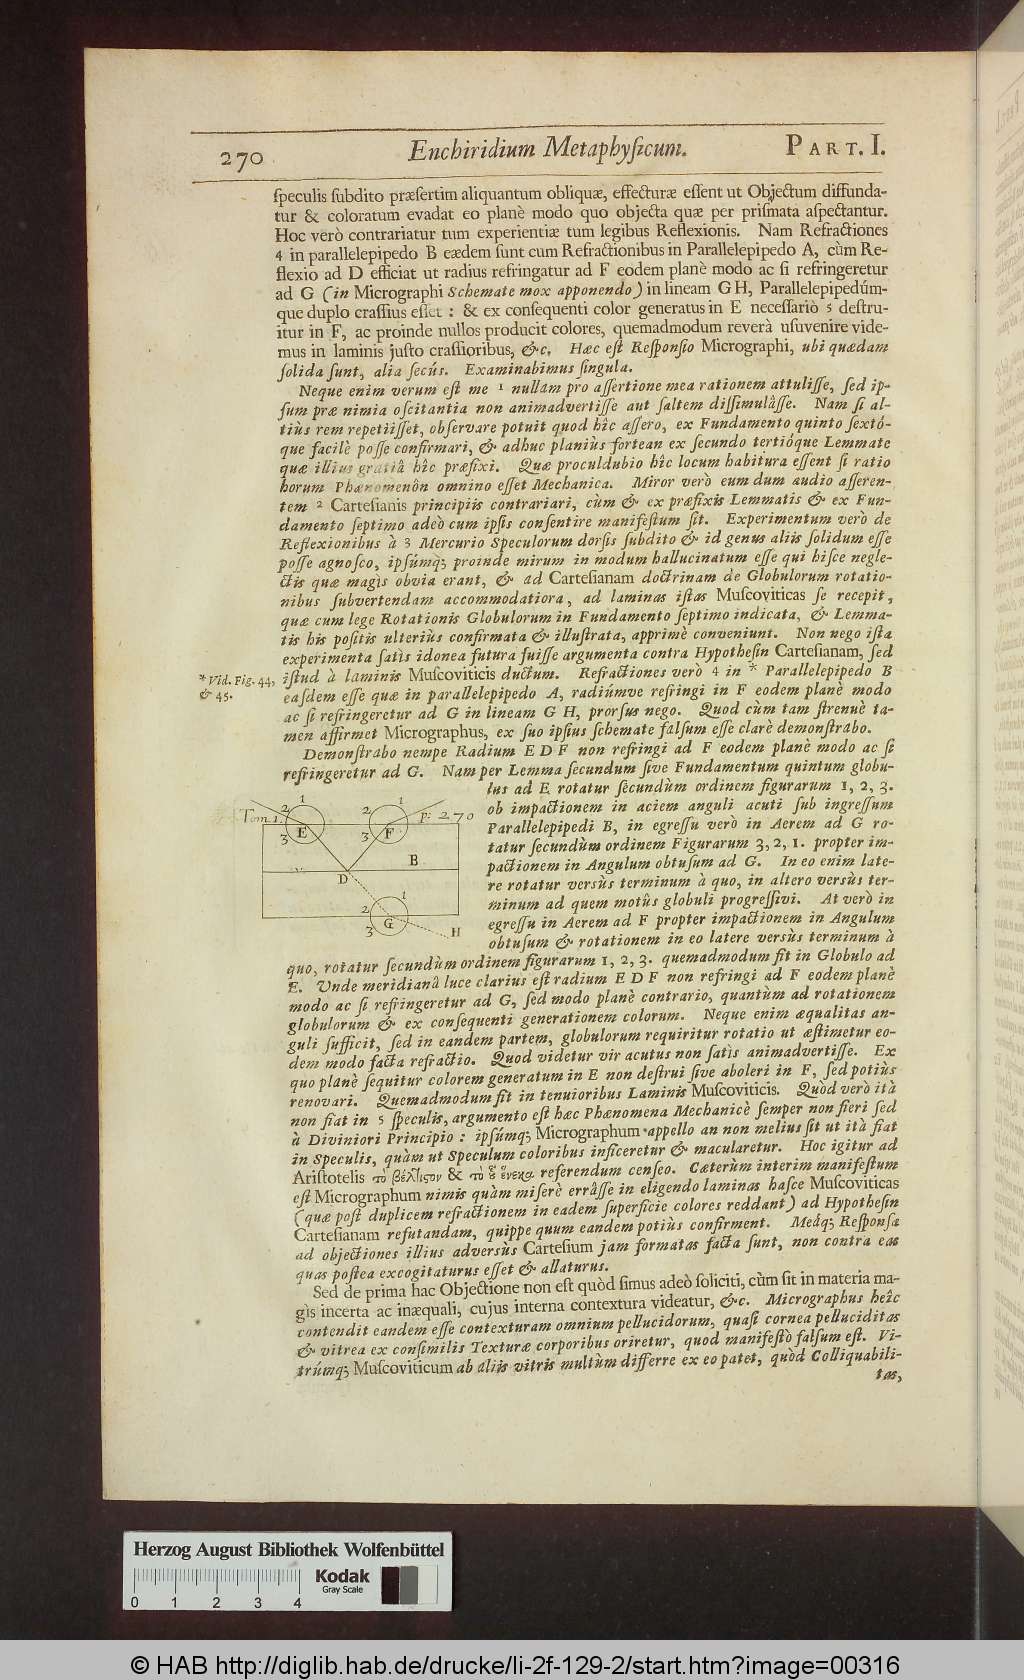 270
Enchiridium Metaphyſicum.
PART. I.
ſpeculis ſubdito præſertim aliquantum obliquæ, effecturæ eſſent ut Objectum diffunda-
tur & coloratum evadat eo planè modo quo objecta quæ per priſmata aſpectantur.
Hoc verò contrariatur tum experientiæ tum legibus Reflexionis. Nam Refractiones
4 in parallelepipedo B eædem ſunt cum Refractionibus in Parallelepipedo A, cùm Re-
flexio ad D efficiat ut radius refringatur ad F eodem planè modo ac ſi refringeretur
ad G (in Micrographi Schemate mox apponendo) in lineam GH, Parallelepipedúm-
que duplo craſſius eſſet : & ex conſequenti color generatus in E neceſſariò 5 deſtru-
itur in F, ac proinde nullos producit colores, quemadmodum reverà uſuvenire vide-
mus in laminis juſto craſſioribus, &c. Hæc eſt Reſponſio Micrographi, ubi quædam
ſolida ſunt, alia ſecús. Examinabimus ſingula.
Neque enim verum eſt me 1 nullam pro aſſertione mea rationem attuliſſe, ſed ip-
ſum præ nimia oſcitantia non animadvertiſſe aut ſaltem diſſimulâſſe. Nam ſi al-
tiùs rem repetiiſſet, obſervare potuit quod hîc aſſero, ex Fundamento quinto ſextó-
que facilè poſſe confirmari, & adhuc planiùs fortean ex ſecundo tertióque Lemmate
quæ illius gratiâ hîc præfixi. Quæ proculdubio hîc locum habitura eſſent ſi ratio
horum Phænomenôn omnino eſſet Mechanica. Miror verò eum dum audio aſſeren-
tem 2 Carteſianis principiis contrariari, cùm & ex præfixis Lemmatis & ex Fun-
damento ſeptimo adeò cum ipſis conſentire manifeſtum ſit. Experimentum verò de
Reflexionibus à 3 Mercurio Speculorum dorſis ſubdito & id genus aliis ſolidum eſſe
poſſe agnoſco, ipſúmq; proinde mirum in modum hallucinatum eſſe qui hiſce negle-
ctis quæ magis obvia erant, & ad Carteſianam doctrinam de Globulorum rotatio-
nibus ſubvertendam accommodatiora, ad laminas iſtas Muſcoviticas ſe recepit,
quæ cum lege Rotationis Globulorum in Fundamento ſeptimo indicata, & Lemma-
tis his poſitis ulteriùs confirmata & illuſtrata, apprimè conveniunt. Non nego iſta
experimenta ſatis idonea futura fuiſſe argumenta contra Hypotheſin Carteſianam, ſed
iſtud à laminis Muſcoviticis ductum. Refractiones verò 4 in * Parallelepipedo B
* Vid. Fig. 44,
& 45.
eaſdem eſſe quæ in parallelepipedo A, radiúmve refringi in F eodem planè modo
ac ſi refringeretur ad G in lineam G H, prorſus nego. Quod cùm tam ſtrenuè ta-
men affirmet Micrographus, ex ſuo ipſius ſchemate falſum eſſe clarè demonſtrabo.
Demonſtrabo nempe Radium E D F non refringi ad F eodem planè modo ac ſi
refringeretur ad G. Nam per Lemma ſecundum ſive Fundamentum quintum globu-
lus ad E rotatur ſecundùm ordinem figurarum 1, 2, 3.
ob impactionem in aciem anguli acuti ſub ingreſſum
Parallelepipedi B, in egreſſu verò in Aerem ad G ro-
tatur ſecundùm ordinem Figurarum 3, 2, 1. propter im-
pactionem in Angulum obtuſum ad G. In eo enim late-
re rotatur verſùs terminum à quo, in altero verſùs ter-
minum ad quem motûs globuli progreſſivi. At verò in
egreſſu in Aerem ad F propter impactionem in Angulum
obtuſum & rotationem in eo latere verſùs terminum à
Tom 1.
p: 270
1
2
3
E
1
2
3
F
B
D
1
2
3
G
H
quo, rotatur ſecundùm ordinem figurarum 1, 2, 3. quemadmodum fit in Globulo ad
E. Unde meridianâ luce clarius eſt radium E D F non refringi ad F eodem planè
modo ac ſi refringeretur ad G, ſed modo planè contrario, quantùm ad rotationem
globulorum & ex conſequenti generationem colorum. Neque enim æqualitas an-
guli ſufficit, ſed in eandem partem, globulorum requiritur rotatio ut æſtimetur eo-
dem modo facta refractio. Quod videtur vir acutus non ſatis animadvertiſſe. Ex
quo planè ſequitur colorem generatum in E non deſtrui ſive aboleri in F, ſed potiùs
renovari. Quemadmodum fit in tenuioribus Laminis Muſcoviticis. Quòd verò ità
non fiat in 5 ſpeculis, argumento eſt hæc Phænomena Mechanicè ſemper non fieri ſed
à Diviniori Principio : ipſúmq; Micrographum appello an non melius ſit ut ità fiat
in Speculis, quàm ut Speculum coloribus inficeretur & macularetur. Hoc igitur ad
Ariſtotelis τὸ βέλτιστον & τὸ οὗ ἕνεκα referendum cenſeo. Cæterùm interim manifeſtum
eſt Micrographum nimis quàm miſerè errâſſe in eligendo laminas haſce Muſcoviticas
(quæ poſt duplicem refractionem in eadem ſuperficie colores reddant) ad Hypotheſin
Carteſianam refutandam, quippe quum eandem potiùs confirment. Meáq; Reſponſa
ad objectiones illius adverſùs Carteſium jam formatas facta ſunt, non contra eas
quas poſtea excogitaturus eſſet & allaturus.
Sed de prima hac Objectione non eſt quòd ſimus adeò ſoliciti, cùm ſit in materia ma-
gis incerta ac inæquali, cujus interna contextura videatur, &c. Micrographus heîc
contendit eandem eſſe contexturam omnium pellucidorum, quaſi cornea pelluciditas
& vitrea ex conſimilis Texturæ corporibus oriretur, quod manifeſtò falſum eſt. Vi-
trúmq; Muſcoviticum ab aliis vitris multùm differre ex eo patet, quòd Colliquabili-
tas,
Herzog August Bibliothek Wolfenbüttel
Kodak
Gray Scale
0 1 2 3 4
© HAB http://diglib.hab.de/drucke/li-2f-129-2/start.htm?image=00316